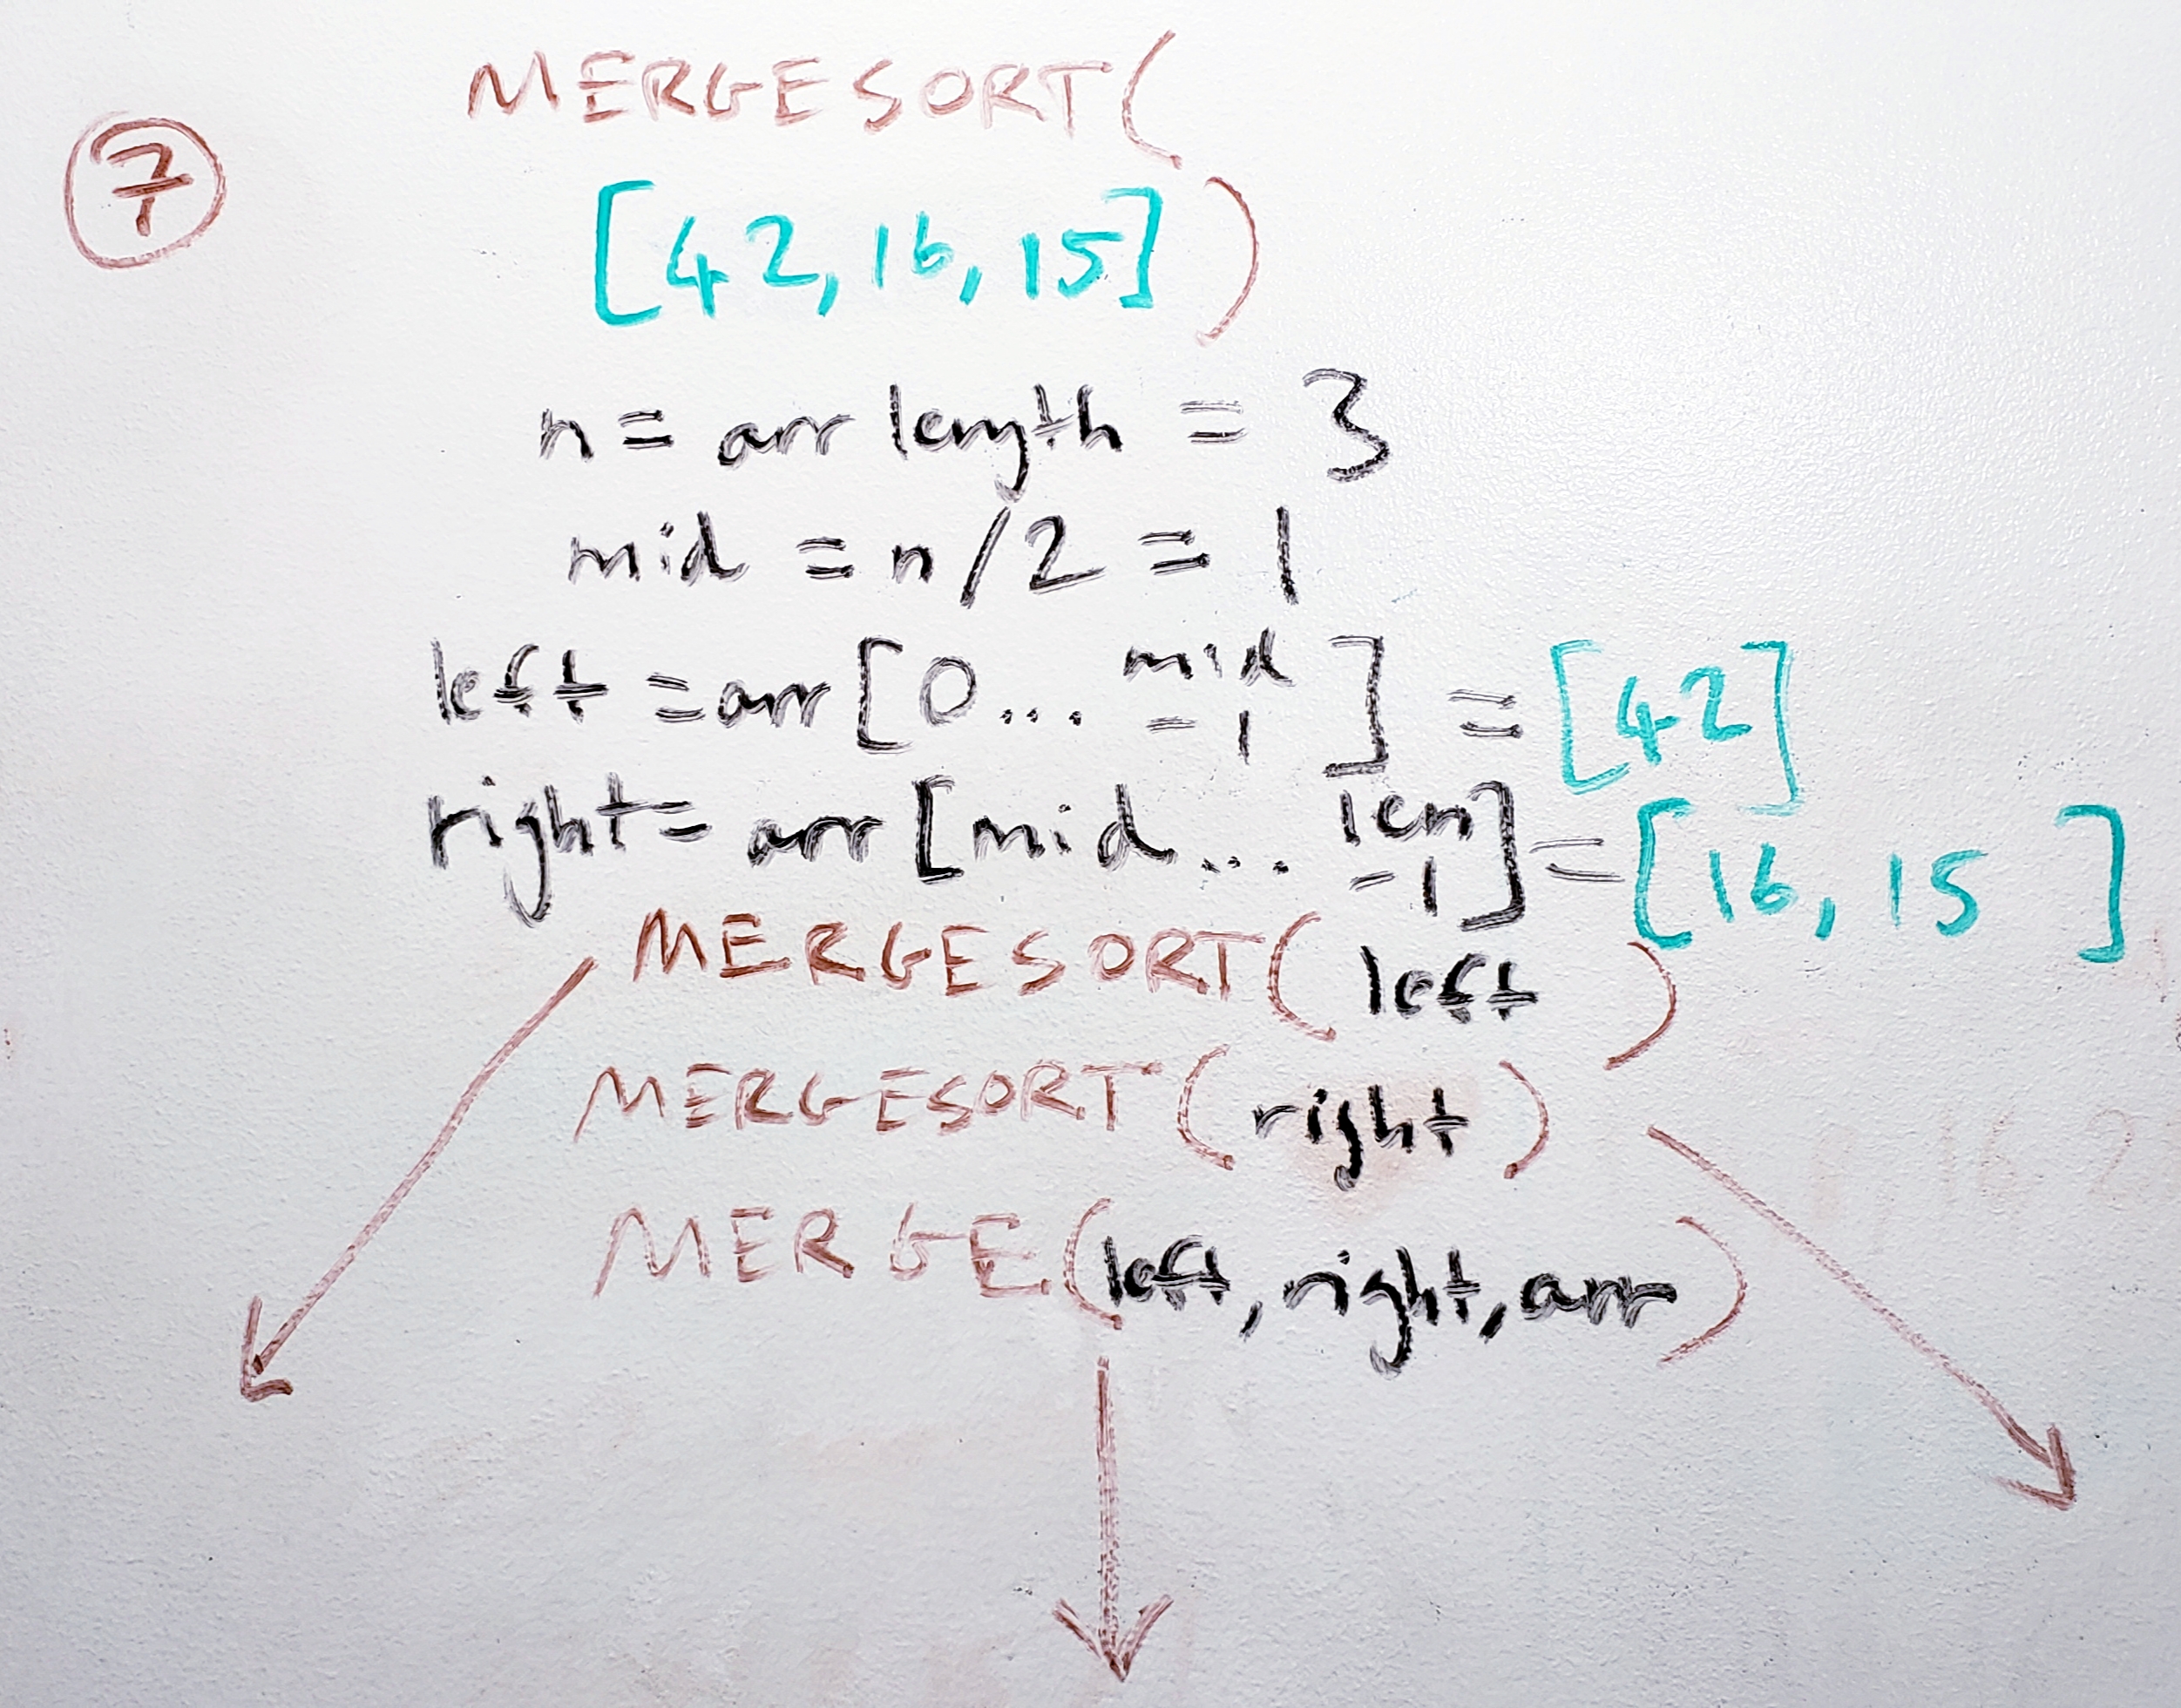 MERGESORT(
7
[42, 16, 15])
n = arr length = 3
mid = n/2 = 1
left = arr[0... mid -1] = [42]
right = arr[mid... len -1] = [16, 15]
MERGESORT(left)
MERGESORT(right)
MERGE(left, right, arr)